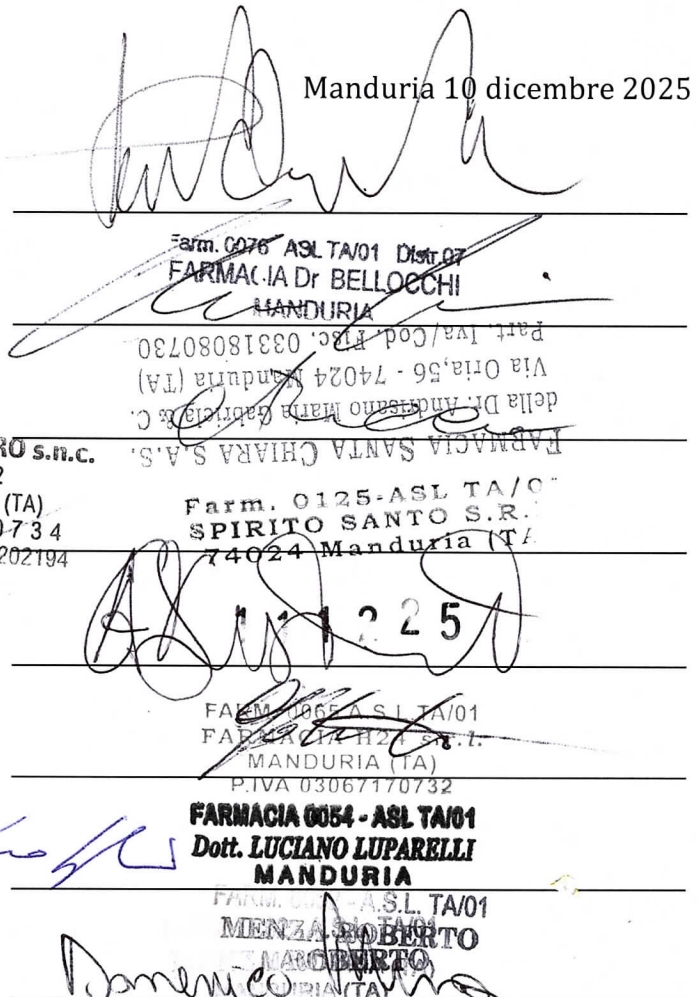 Manduria 10 dicembre 2025
Farm. 0076 ASL TA/01 Distr.07
FARMACIA Dr BELLOCCHI
MANDURIA
FARMACIA SANTA CHIARA S.A.S.
della Dr. Andrisano Maria Gabriela & C.
Via Oria,56 - 74024 Manduria (TA)
Part. Iva/Cod. Fisc. 03318080730
RO s.n.c.
2
(TA)
0734
202194
Farm. 0125-ASL TA/0
SPIRITO SANTO S.R.
74024 Manduria (TA
11 12 25
FARM. 0065 A.S.L. TA/01
FARMACIA H24 s.r.l.
MANDURIA (TA)
P.IVA 03067170732
FARMACIA 0054 - ASL TA/01
Dott. LUCIANO LUPARELLI
MANDURIA
A.S.L. TA/01
MENZA ROBERTO
ROBERTO
MANDURIA (TA)
Domenico